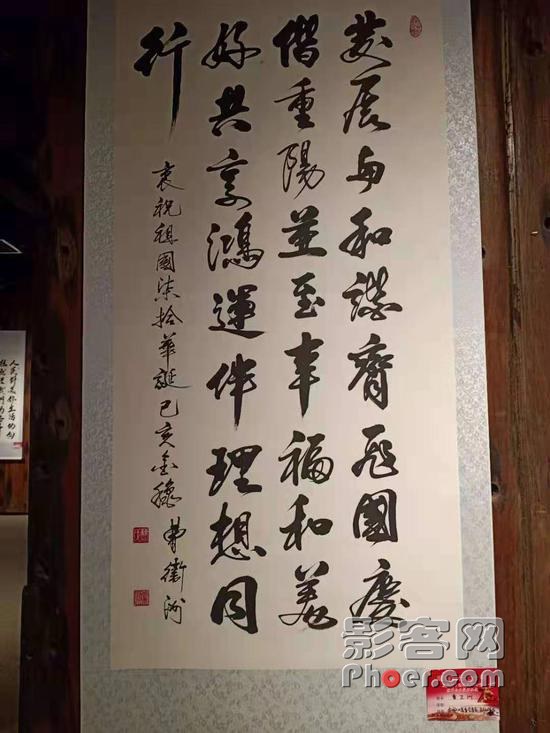 發展与和諧齊飛國慶
偕重陽並至幸福和美
好共享鴻運伴理想同
行
衷祝祖國柒拾華誕己亥金穗
人民對美好生活的向
影客网
Phoer.com